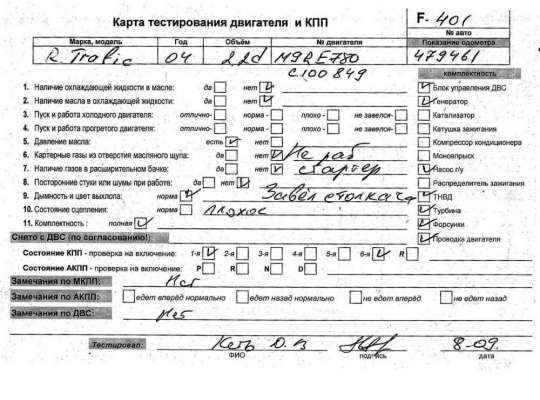 Карта тестирования двигателя и КПП
F- 401
№ авто
Марка, модель Год Объём № двигателя Показание одометра
R. Trafic 04 2.2d M9RE780 479461
C100849
комплектность
1. Наличие охлаждающей жидкости в масле: да нет Блок управления ДВС
2. Наличие масла в охлаждающей жидкости: да нет Генератор
3. Пуск и работа холодного двигателя: отлично- норма - плохо - не завелся- Катализатор
4. Пуск и работа прогретого двигателя: отлично- норма - плохо - не завелся- Катушка зажигания
5. Давление масла: есть нет Компрессор кондиционера
6. Картерные газы из отверстия масляного щупа: да нет Не раб Моновпрыск
7. Наличие газов в расширительном бачке: да нет стартер Насос г/у
8. Посторонние стуки или шумы при работе: да нет Распределитель зажигания
9. Дымность и цвет выхлопа: норма Завёл с толкача ТНВД
10. Состояние сцепления: норма плохое Турбина
11. Комплектность : полная Форсунки
Снято с ДВС (по согласованию!) Проводка двигателя
Состояние КПП - проверка на включение: 1-я 2-я 3-я 4-я 5-я 6-я R
Состояние АКПП - проверка на включение: P R N D
Замечания по МКПП: Нет
Замечания по АКПП: едет вперёд нормально едет назад нормально не едет вперёд не едет назад
Замечания по ДВС: Нет
Тестировал: О. В 8-09.
ФИО подпись дата